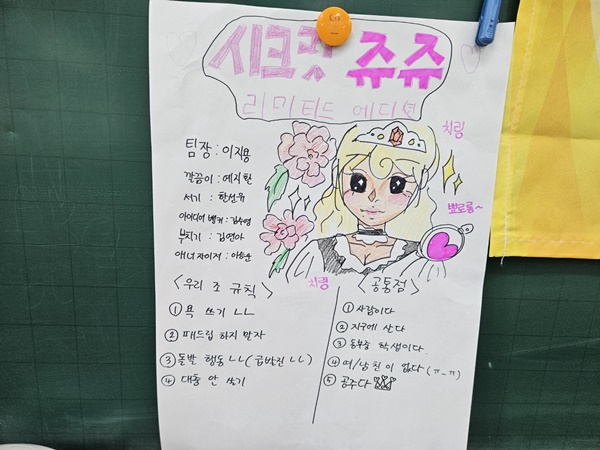 시크릿 쥬쥬
리미티드 에디션
치링
팀장 : 이지용
깔끔이 : 예지환
서기 : 한선유
아이디어 뱅커 : 김수영
부치기 : 김연아
애너자이저 :
뾰로롱~
치령
<우리 조 규칙>
① 욕 쓰기 ㄴㄴ
② 패드립 하지 말자
③ 돌발 행동 ㄴㄴ (급발진 ㄴㄴ)
④ 대충 안 쓰기
<공통점>
① 사람이다
② 지구에 산다
③ 동부중 학생이다
④ 여/남친이 없다 (ㅠ_ㅠ)
⑤ 공주다